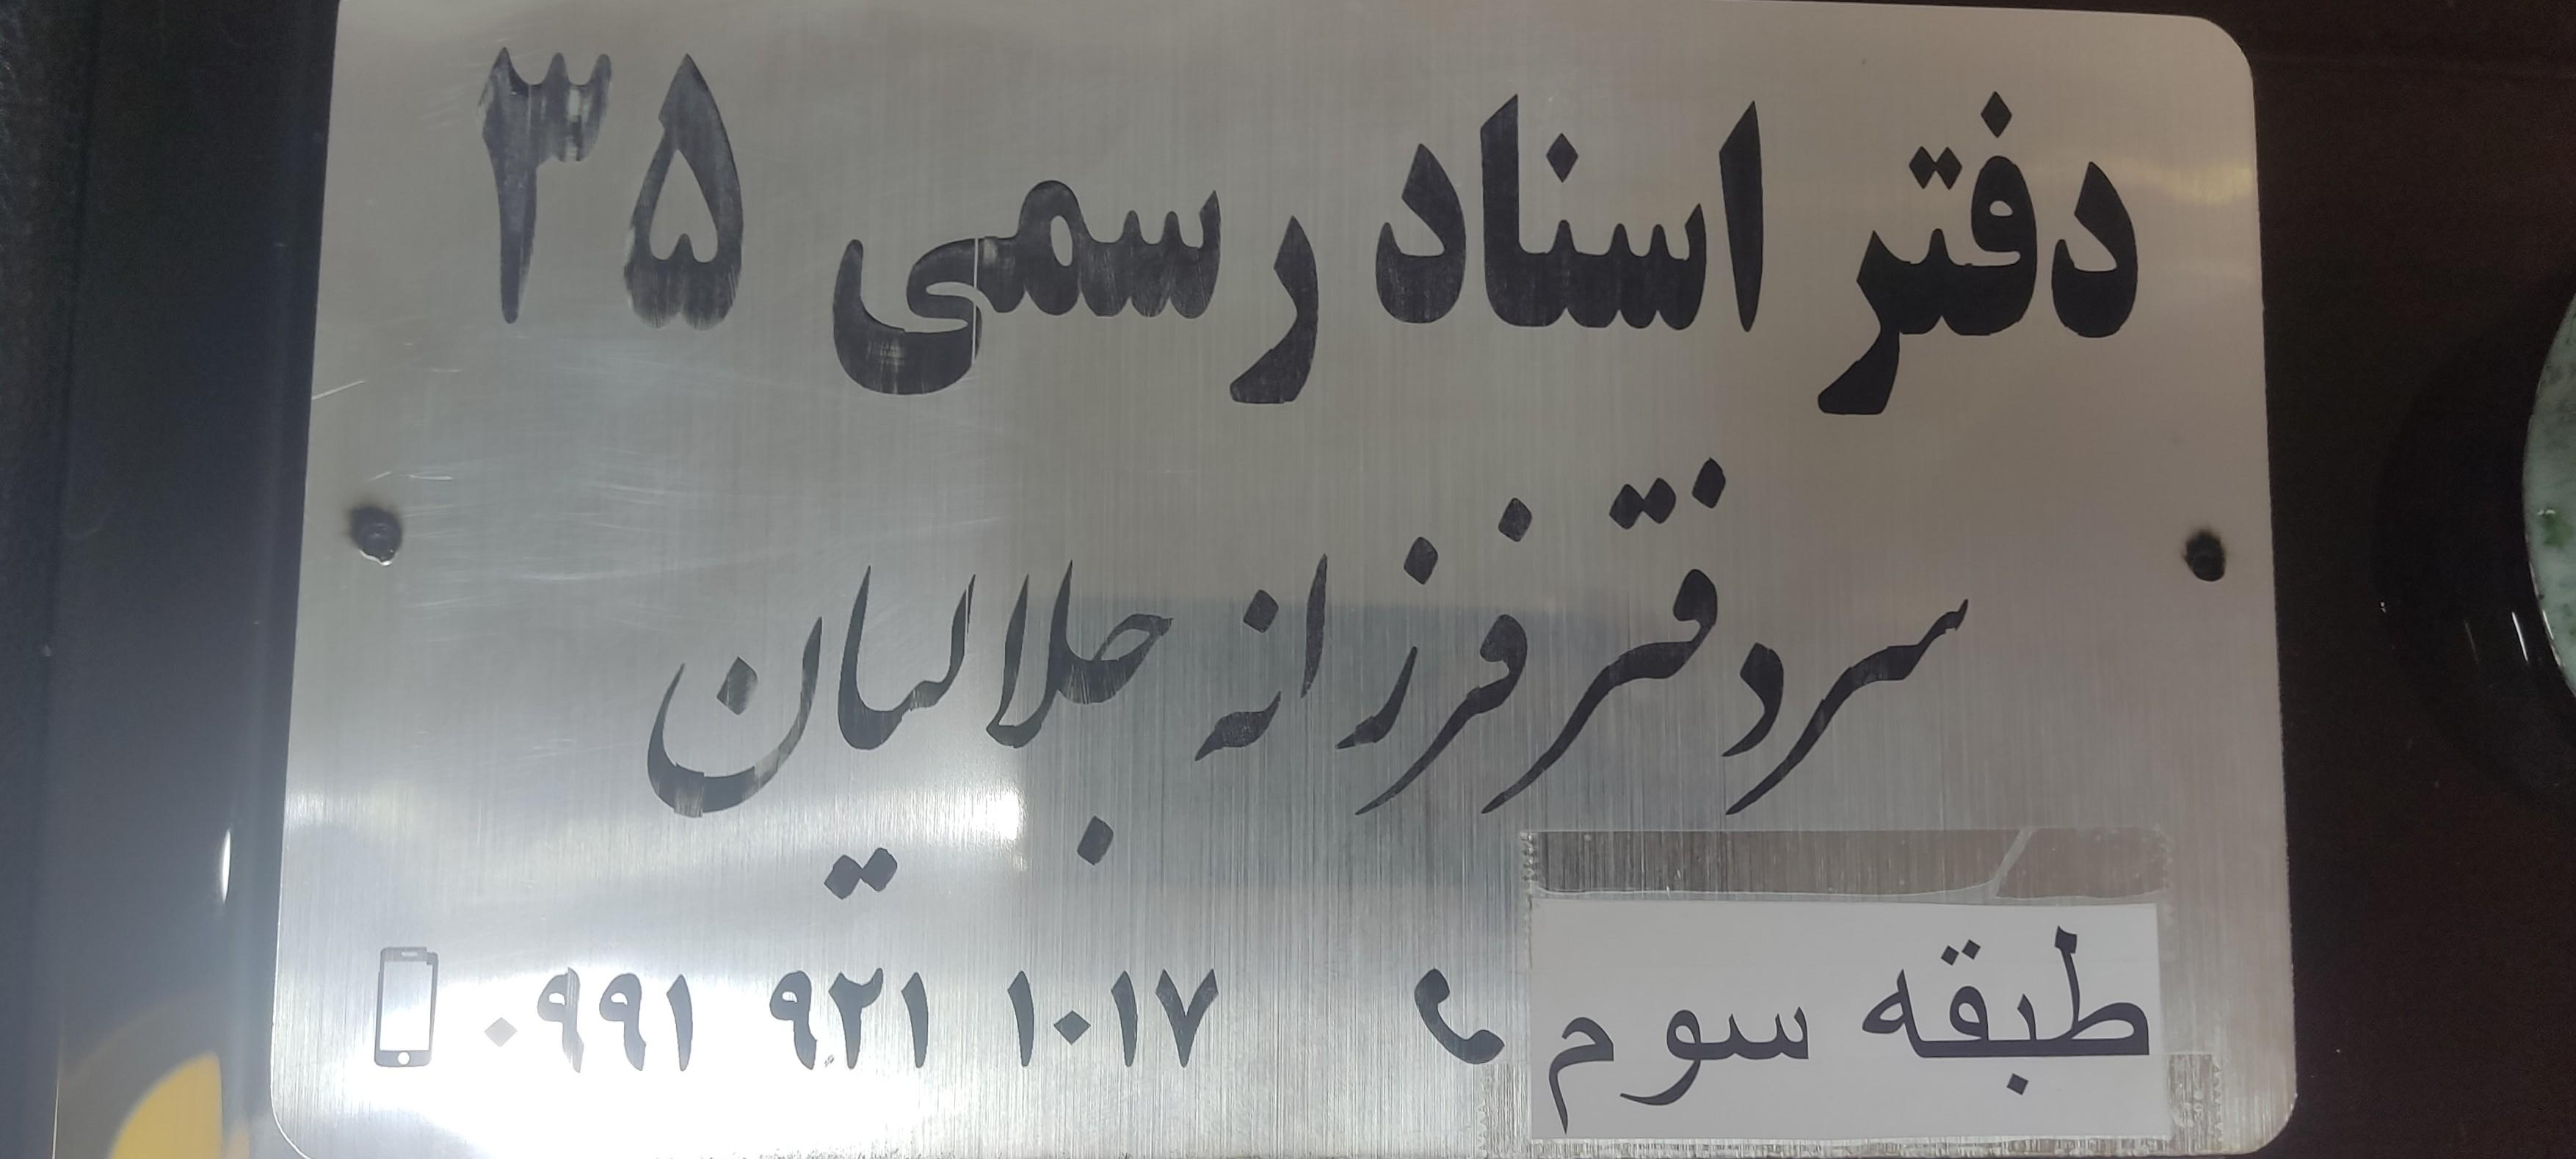 دفتر اسناد رسمی ۳۵
سردفتر فرزانه جلالیان
طبقه سوم
۰۹۹۱ ۹۲۱ ۱۰۱۷